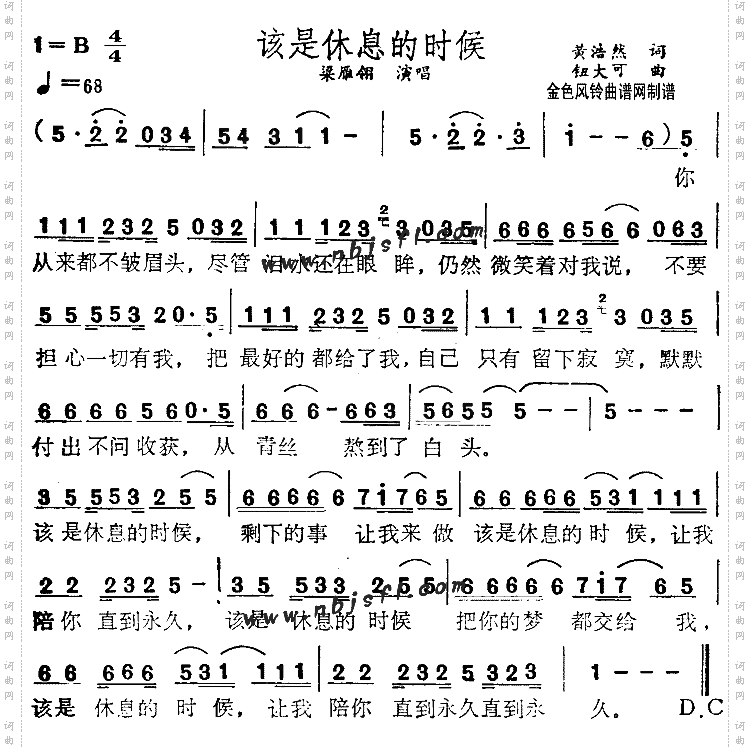 该是休息的时候
1=B 4/4
♩=68
黄浩然 词
梁雁翎 演唱
钮大可 曲
金色风铃曲谱网制谱
(5·2 2 034 | 54 31 1- | 5·2 2·3 | 1--6) 5 |
你
111 232 5 032 | 11 123 2 3 035 | 666 6656 6 063 |
从来都不皱眉头，尽管 泪水还在眼 眸，仍然 微笑着对我说，不要
www.nbjsfl.com
55 553 32 20·5 | 111 232 5 032 | 11 123 2 3 035 |
担心一切有我，把 最好的都给了我，自己 只有留下寂 寞，默默
66 66 56 60·5 | 66 6-663 | 5655 5-- | 5--- |
付出不问收获，从 青丝 熬到了 白头。
35 553 2 55 | 6666 6 71765 | 6666 6531 111 |
该是休息的时候， 剩下的事 让我来做 该是休息的时 候，让我
22 232 5- | 35 533 2 55 | 66666 717 65 |
陪你 直到永久， 该是 休息的 时候 把你的梦 都交给 我，
www.nbjsfl.com
66 666 531 111 | 22 2325 5323 | 1--- |
该是 休息的 时 候，让我 陪你 直到永久直到永 久。 D.C
词曲网